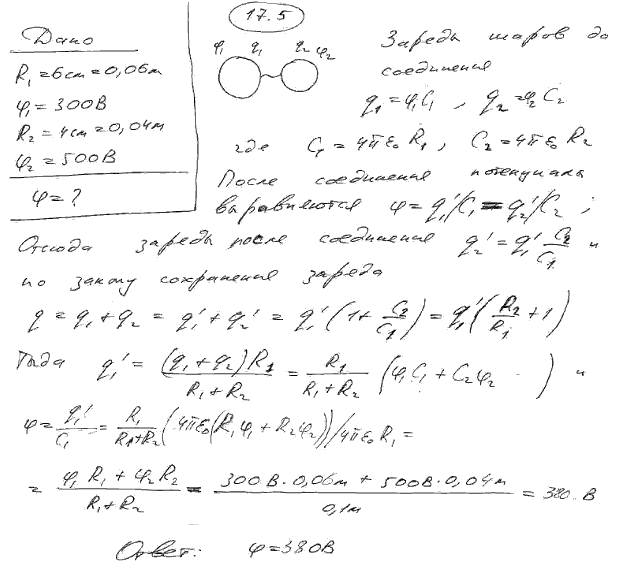 17.5
Дано
R₁ = 6см = 0,06м
φ₁ = 300В
R₂ = 4см = 0,04м
φ₂ = 500В
φ = ?
φ₁ q₁ q₂ φ₂
Заряды шаров до
соединения
q₁ = φ₁C₁ , q₂ = φ₂C₂
где C₁ = 4πε₀R₁ , C₂ = 4πε₀R₂
После соединения потенциала
выравняются φ = q₁'/C₁ = q₂'/C₂ ;
Отсюда заряды после соединения q₂' = q₁' C₂/C₁ и
по закону сохранения заряда
q = q₁ + q₂ = q₁' + q₂' = q₁' (1 + C₂/C₁) = q₁' (R₂/R₁ + 1)
Тогда q₁' = (q₁ + q₂)R₁/(R₁ + R₂) = R₁/(R₁ + R₂) (φ₁C₁ + C₂φ₂) и
φ = q₁'/C₁ = R₁/(R₁+R₂) (4πε₀(R₁φ₁ + R₂φ₂))/4πε₀R₁ =
= (φ₁R₁ + φ₂R₂)/(R₁ + R₂) = (300В · 0,06м + 500В · 0,04м)/0,1м = 380 В
Ответ: φ = 380В